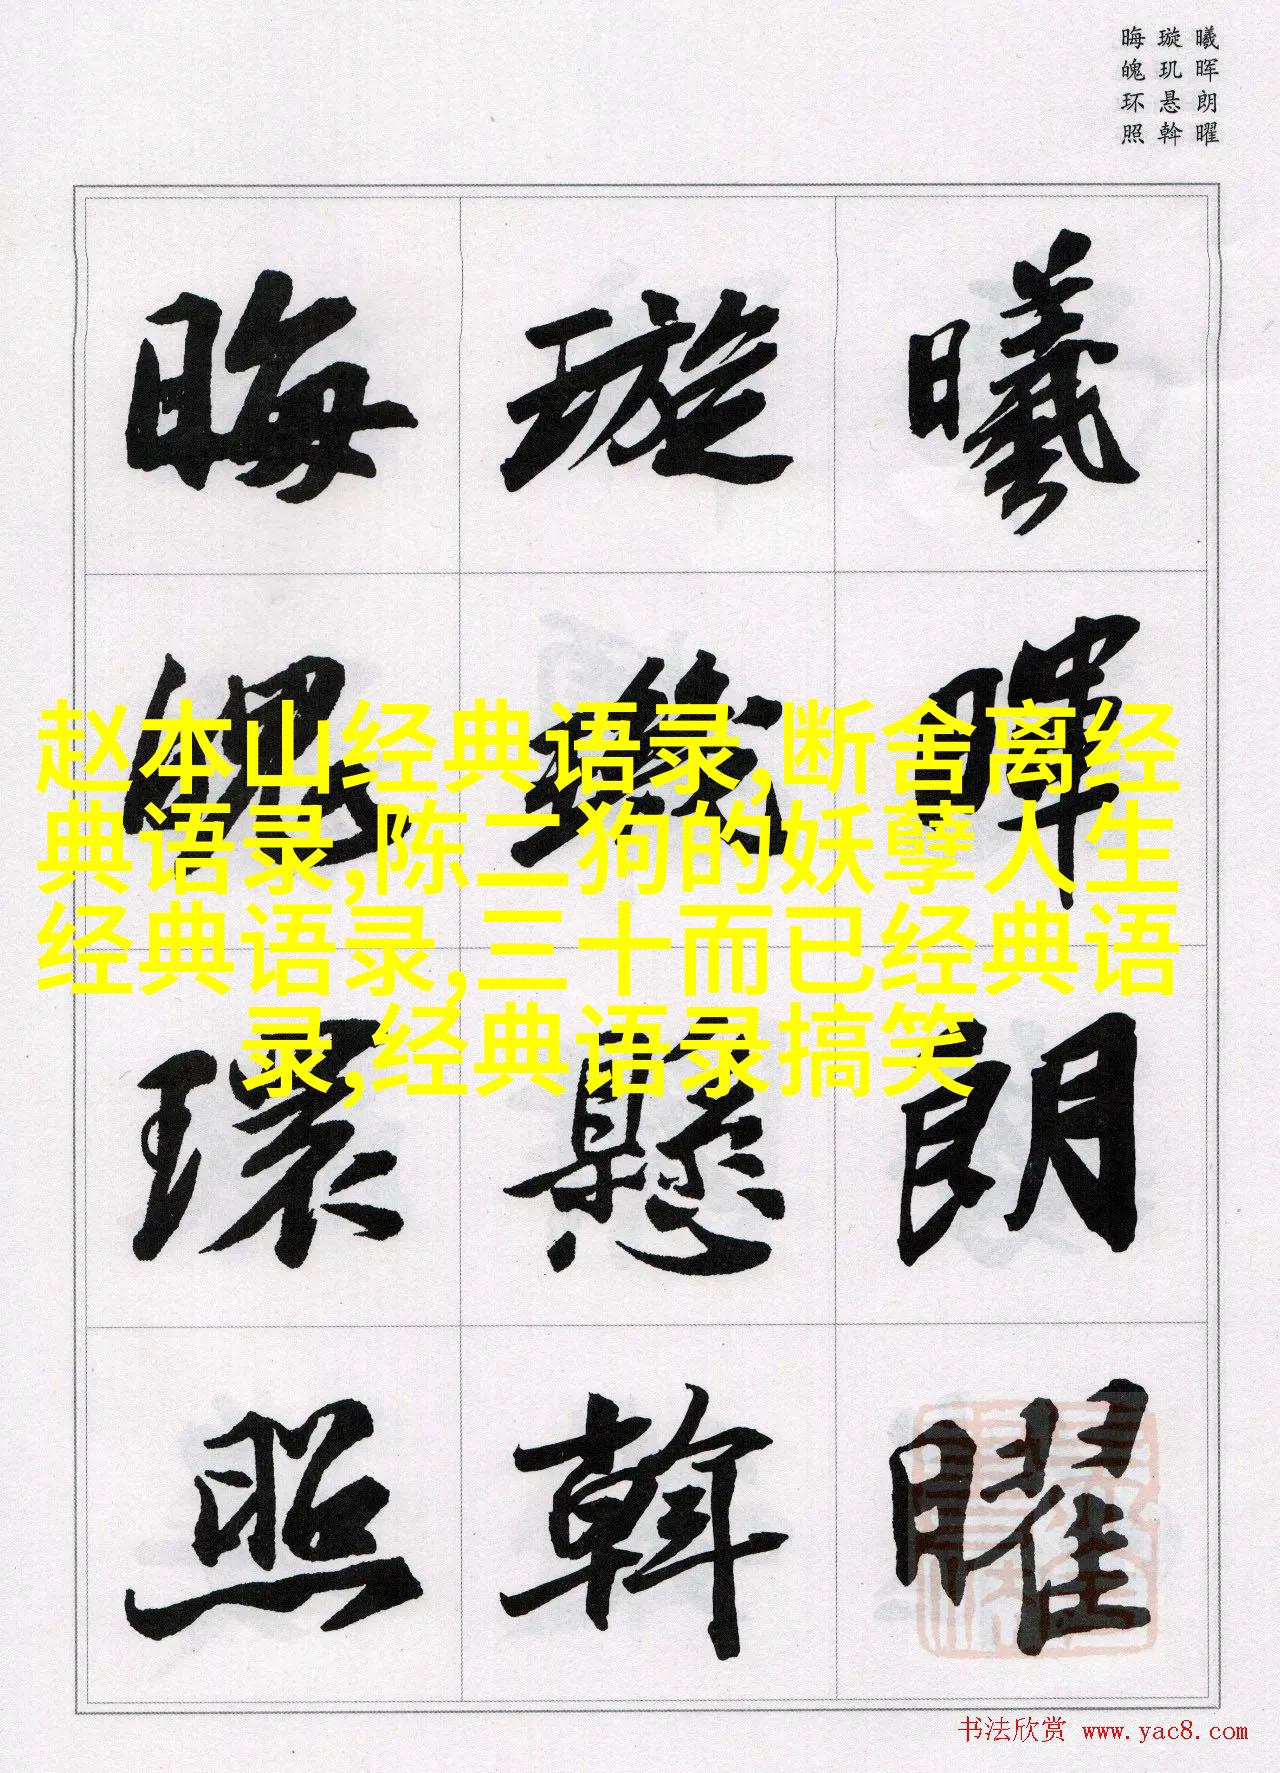 曦晖朗曜
璇玑悬斡
晦魄环照
曦暉朗曜
璇璣懸斡
晦魄環照
赵本山经典语录,断舍离经
典语录,陈二狗的妖孽人生
经典语录,三十而已经典语
录,经典语录搞笑
书法欣赏 www.yac8.com